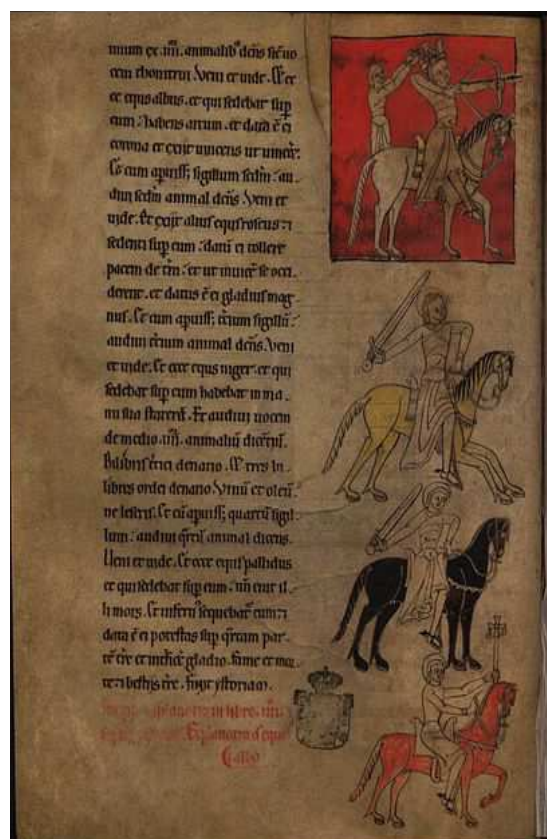 nnum ex .iiii. animalib' dcns sic uo
cem thonitrui Veni et uide. Et ec
ce equs albus. et qui sedebat sup
eum: habens arcum. et data ē ei
corona et exiit uincens ut uinceř.
Et cum apuiss; sigillum sedm̄: au
diui sedm animal dc̄ns. Veni et
uide. Et exijt alius equs roseus: ⁊
sedenti sup eum: datū ē ei tollere
pacem de tr̄a: et ut inuicē se occi
derent. et datus ē ei gladius mag
nus. Et cum apuiss; tcium sigillū:
audiui tcium animal dc̄ns. Veni
et uide. Et ecce equs niger. et qui
sedebat sup eum habebat in ma
nu sua staterā. Et audiui uocem
de medio .iiii. animaliū dicētiū.
Bilibris tritici denario. Et tres bi
libres ordei denario. Vinū et oleū
ne leseris. Et cū apuiss; quartū sigil
lum: audiui qrti animal dicens.
Veni et uide. Et ecce equs pallidus
et qui sedebat sup eum: nn̄ erat il
li mors. Et infern' sequebat' eum: ⁊
data ē ei potestas sup qrtam par
tē tr̄e et inficē gladio. fame et mor
te: ⁊ bestijs tr̄e. finit ystoriam.
in libro .iiii.
Explanatio d' equo
albo